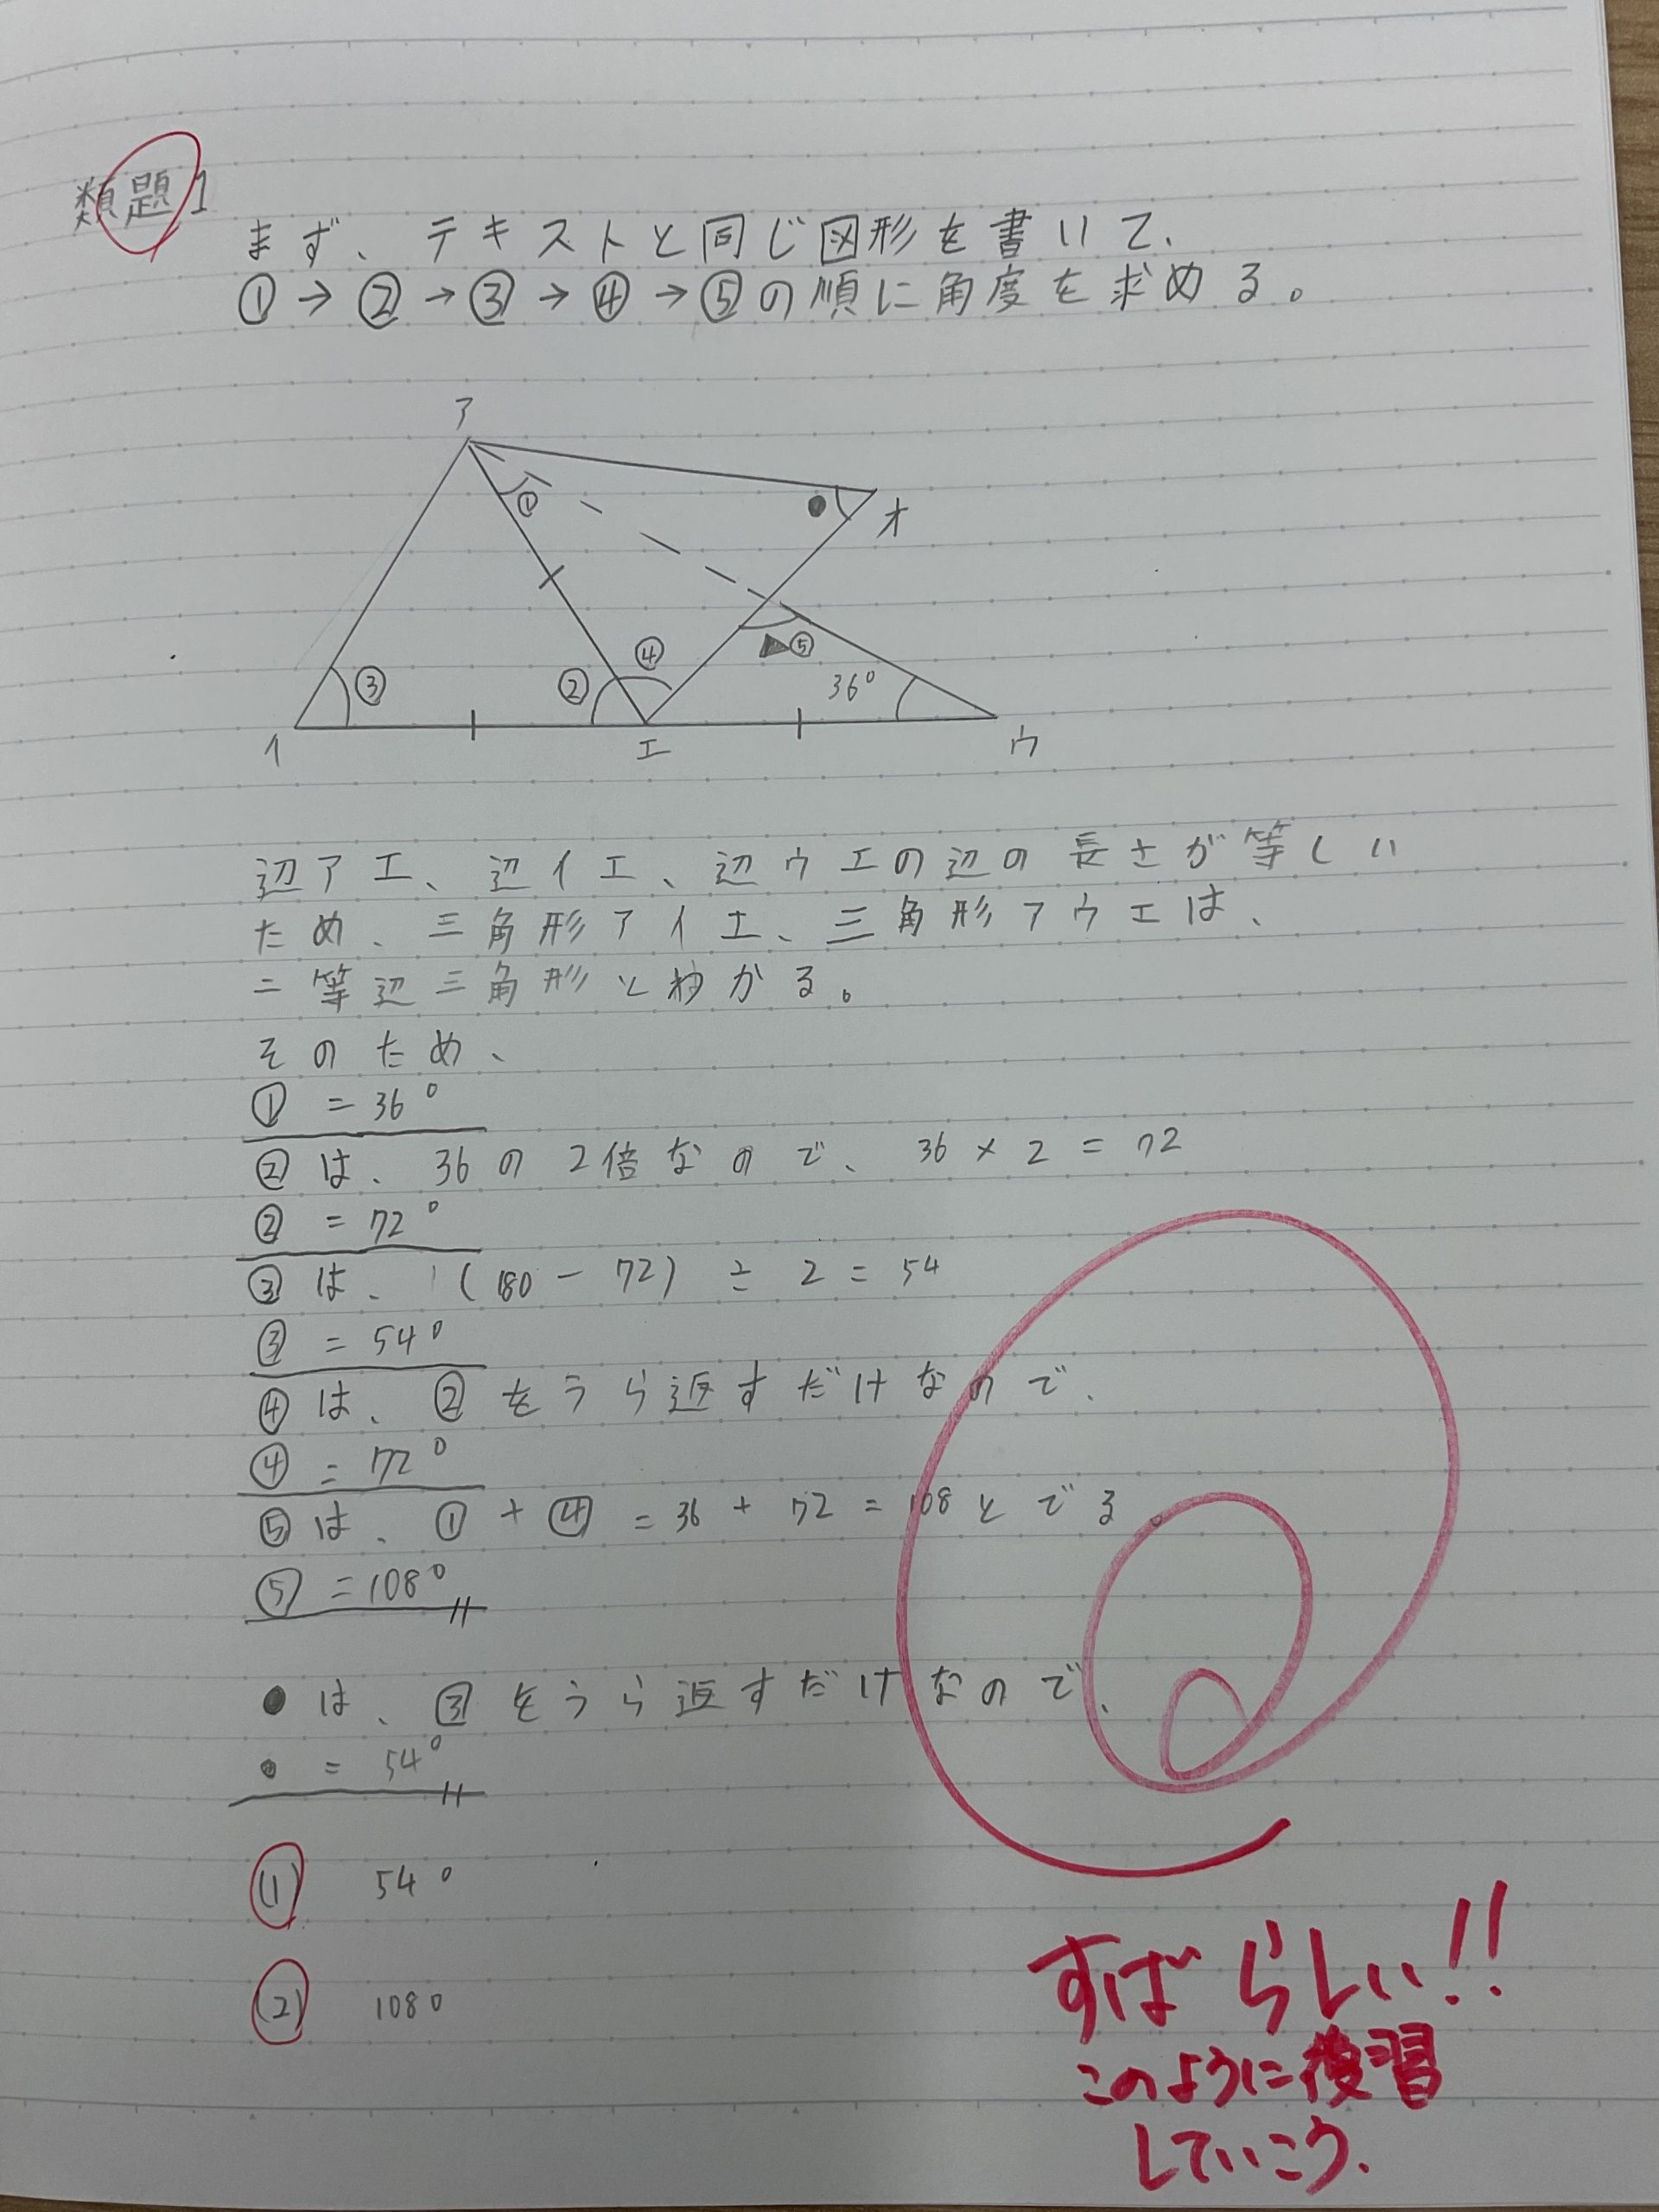 類題1
まず、テキストと同じ図形を書いて、
①→②→③→④→⑤の順に角度を求める。
ア
①
オ
④
⑤
③
②
36°
イ
エ
ウ
辺アエ、辺イエ、辺ウエの辺の長さが等しい
ため、三角形アイエ、三角形アウエは、
二等辺三角形と分かる。
そのため、
① = 36°
②は、36の2倍なので、36 × 2 = 72
② = 72°
③は、(180 - 72) ÷ 2 = 54
③ = 54°
④は、②をうら返すだけなので、
④ = 72°
⑤は、① + ④ = 36 + 72 = 108とでる。
⑤ = 108°
●は、③をうら返すだけなので、
● = 54°
(1) 54°
(2) 108°
すばらしい!!
このように復習
していこう.